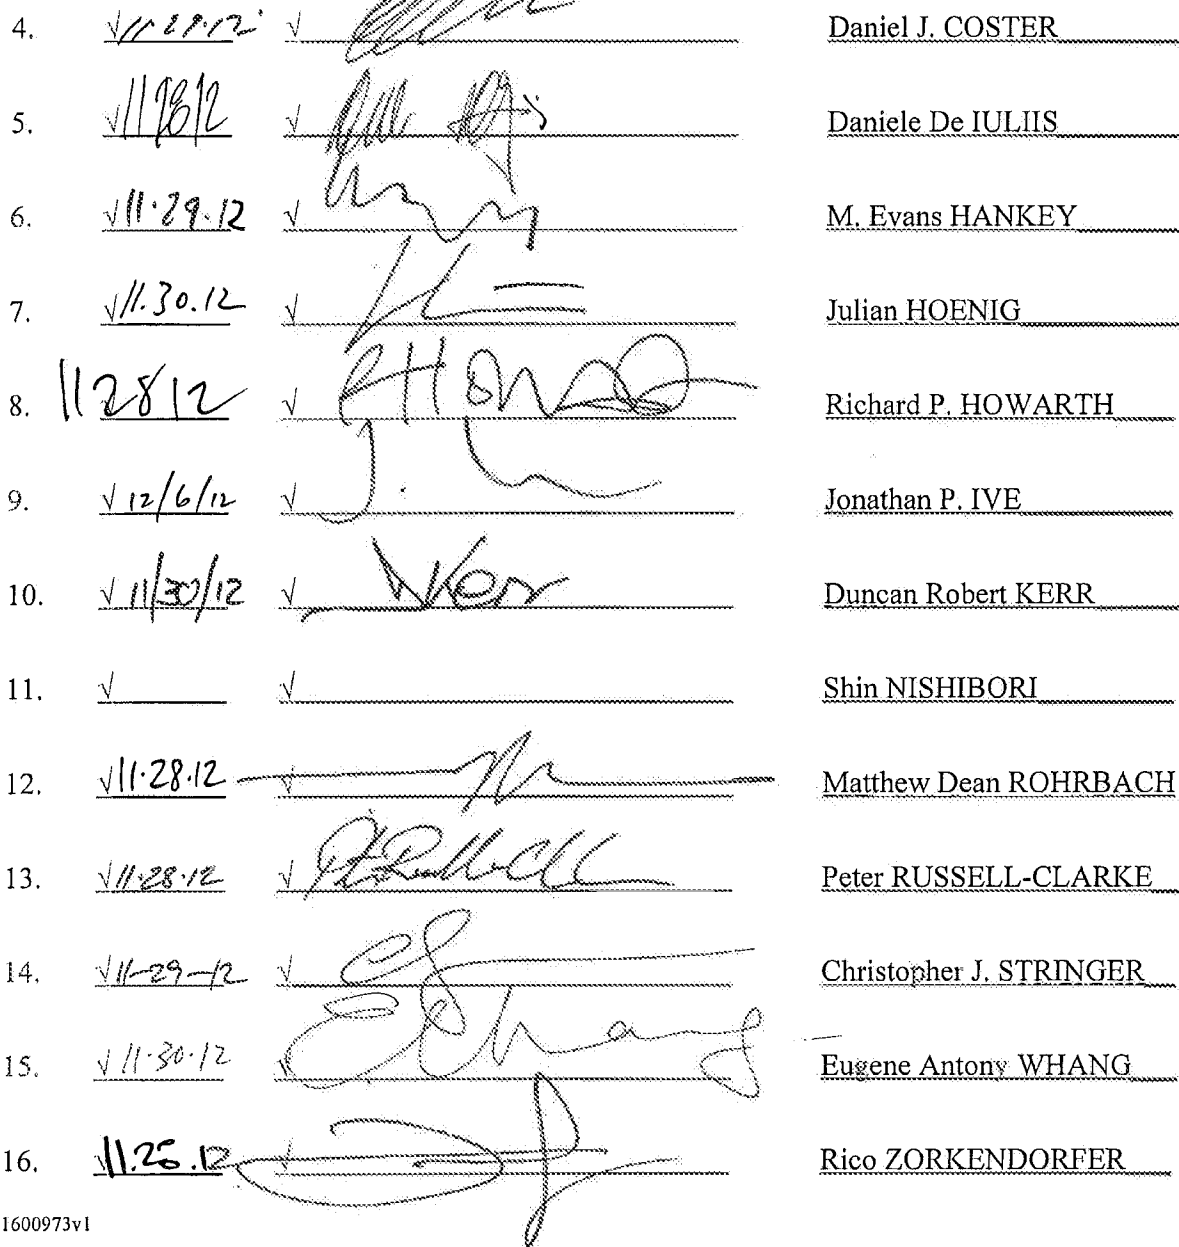 4. √ 11·29·12 √ Daniel J. COSTER
5. √ 11/28/12 √ Daniele De IULIIS
6. √ 11·29·12 √ M. Evans HANKEY
7. √ 11.30.12 √ Julian HOENIG
8. 11 28 12 √ RHOWARTH Richard P. HOWARTH
9. √ 12/6/12 √ Jonathan P. IVE
10. √ 11/30/12 √ DKerr Duncan Robert KERR
11. √ √ Shin NISHIBORI
12. √ 11·28·12 √ Matthew Dean ROHRBACH
13. √ 11·28·12 √ Peter RUSSELL-CLARKE
14. √ 11-29-12 √ Christopher J. STRINGER
15. √ 11·30·12 √ EWhang Eugene Antony WHANG
16. √ √ Rico ZORKENDORFER
1600973v1